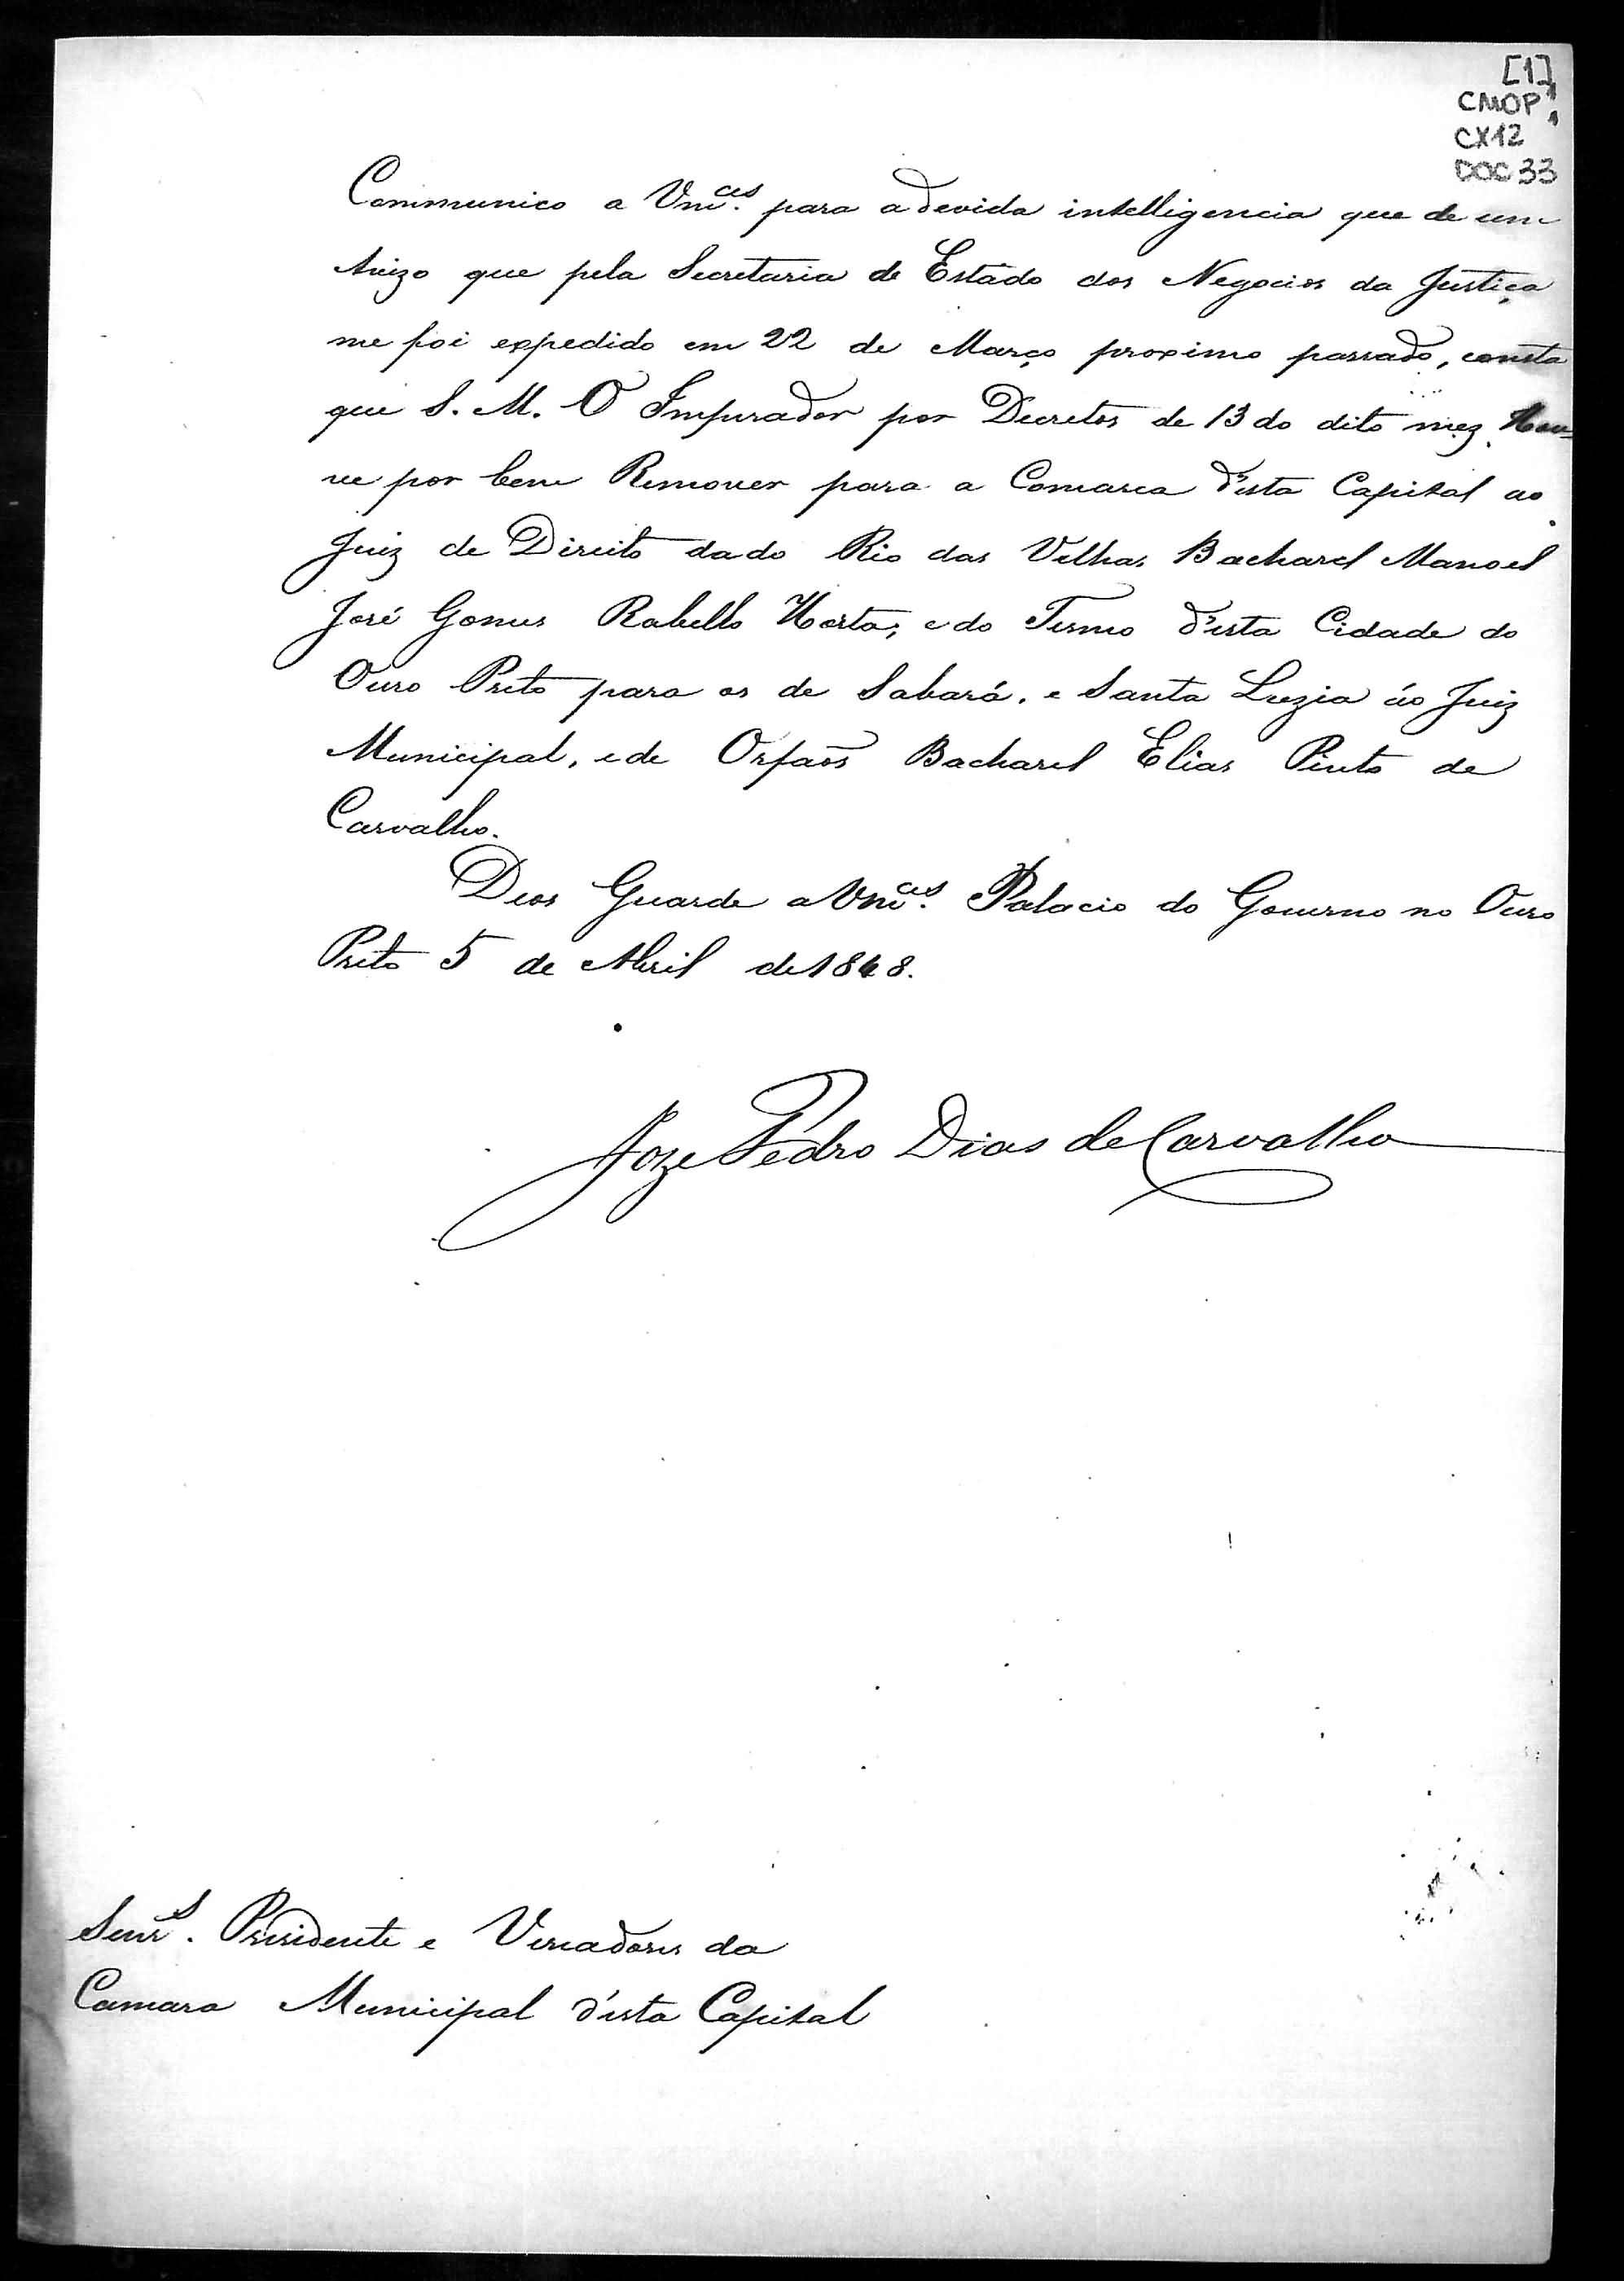 [1]
CMOP
CX12
DOC 33
Communico a Vm.ces para a devida intelligencia que de um
Avizo que pela Secretaria de Estado dos Negocios da Justiça
me foi expedido em 22 de Março proximo passado, consta
que S. M. O Imperador por Decretos de 13 do dito mez Hou=
ve por bem Remover para a Comarca d'esta Capital ao
Juiz de Direito da do Rio das Velhas Bacharel Manoel
José Gomes Rabello Horta; e do Termo d'esta Cidade do
Ouro Preto para os de Sabará, e Santa Luzia ao Juiz
Municipal, e de Orfaõs Bacharel Elias Pinto de
Carvalho.
Deos Guarde a Vm.ces Palacio do Governo no Ouro
Preto 5 de Abril de 1848.
Joze Pedro Dias de Carvalho
Senr.s Presidente e Vereadores da
Camara Municipal d'esta Capital